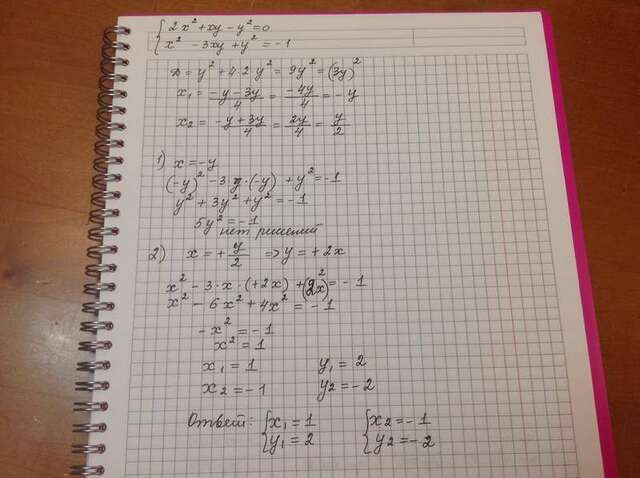 { 2x² + xy - y² = 0
{ x² - 3xy + y² = -1
D = y² + 4·2y² = 9y² = (3y)²
x₁ = (-y - 3y)/4 = -4y/4 = -y
x₂ = (-y + 3y)/4 = 2y/4 = y/2
1) x = -y
(-y)² - 3y·(-y) + y² = -1
y² + 3y² + y² = -1
5y² = -1
нет решений
2) x = + y/2 ⇒ y = +2x
x² - 3·x·(+2x) + (2x)² = -1
x² - 6x² + 4x² = -1
-x² = -1
x² = 1
x₁ = 1 y₁ = 2
x₂ = -1 y₂ = -2
Ответ: { x₁ = 1 { x₂ = -1
{ y₁ = 2 { y₂ = -2